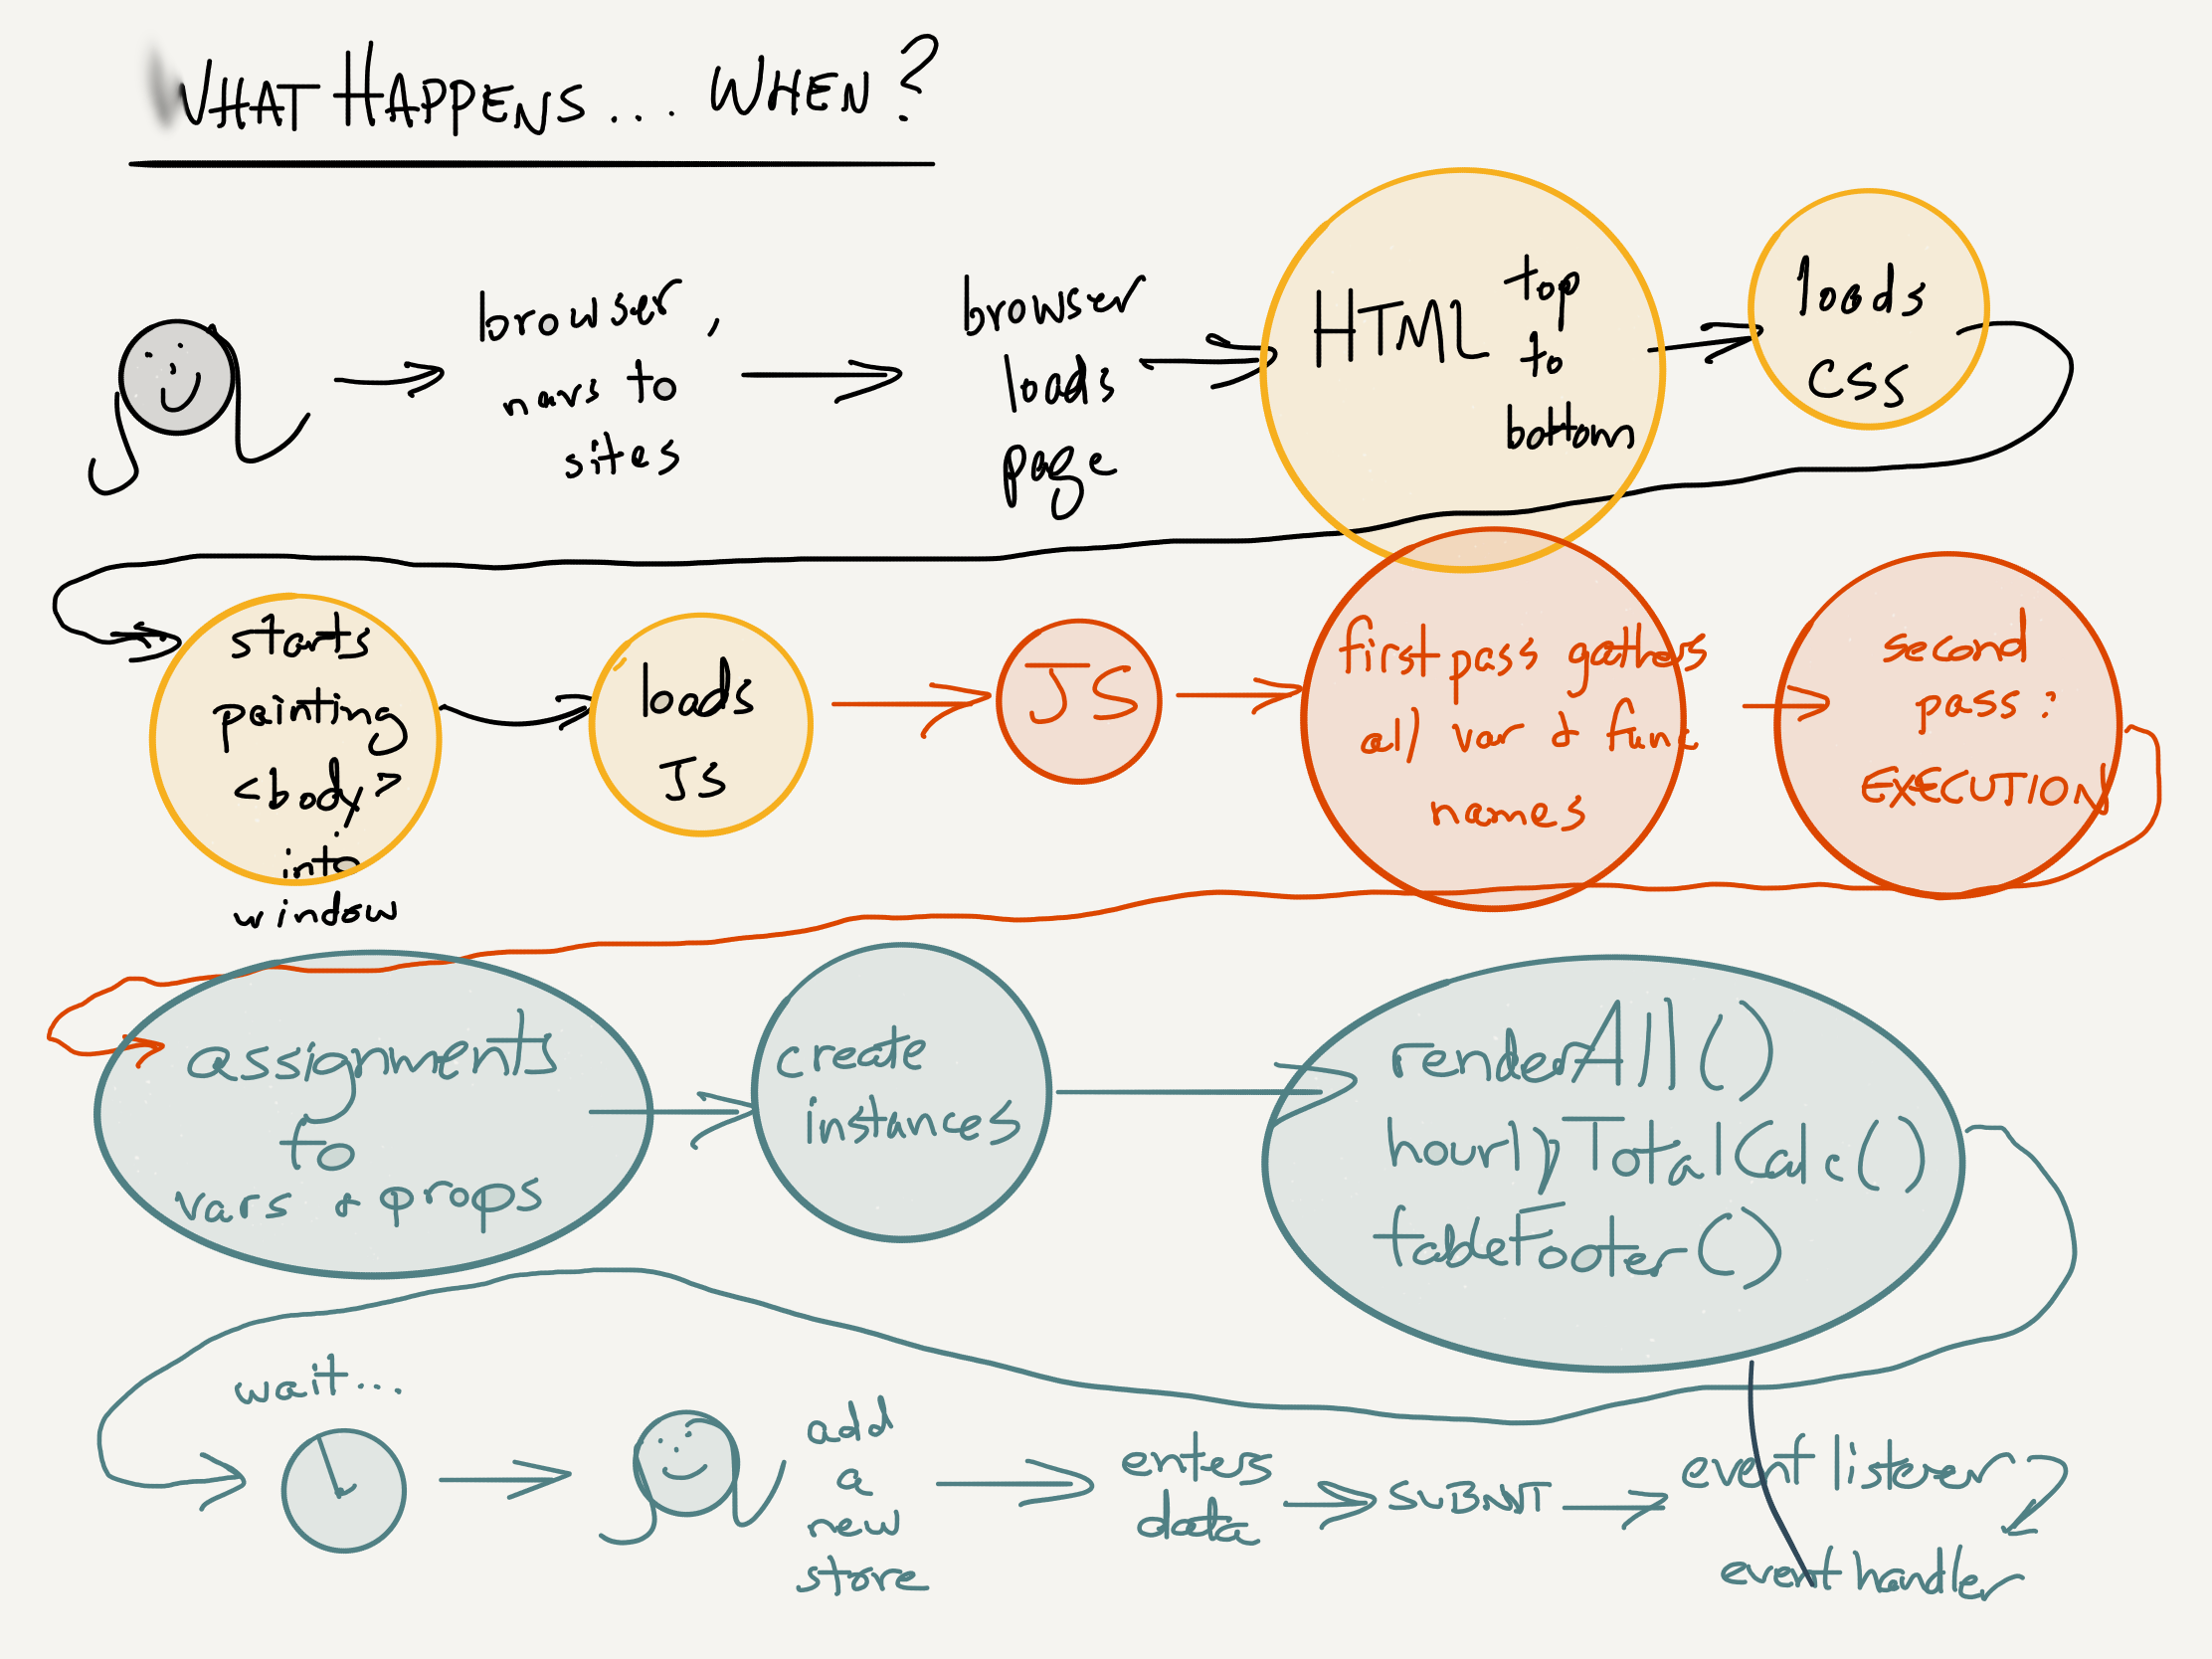 WHAT HAPPENS... WHEN?
browser,
navs to
sites
browser
loads
page
HTML
top
to
bottom
loads
CSS
starts
painting
<body>
into
window
loads
JS
JS
first pass gathers
all var & func
names
second
pass:
EXECUTION
assignments
to
vars & props
create
instances
renderAll()
hourlyTotalCalc()
tableFooter()
wait...
add
a
new
store
enters
data
SUBMIT
event listener
event handler